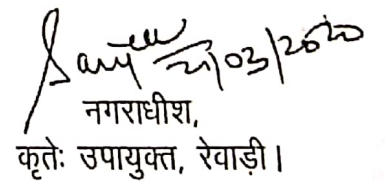 21/03/2020
नगराधीश,
कृतेः उपायुक्त, रेवाड़ी।